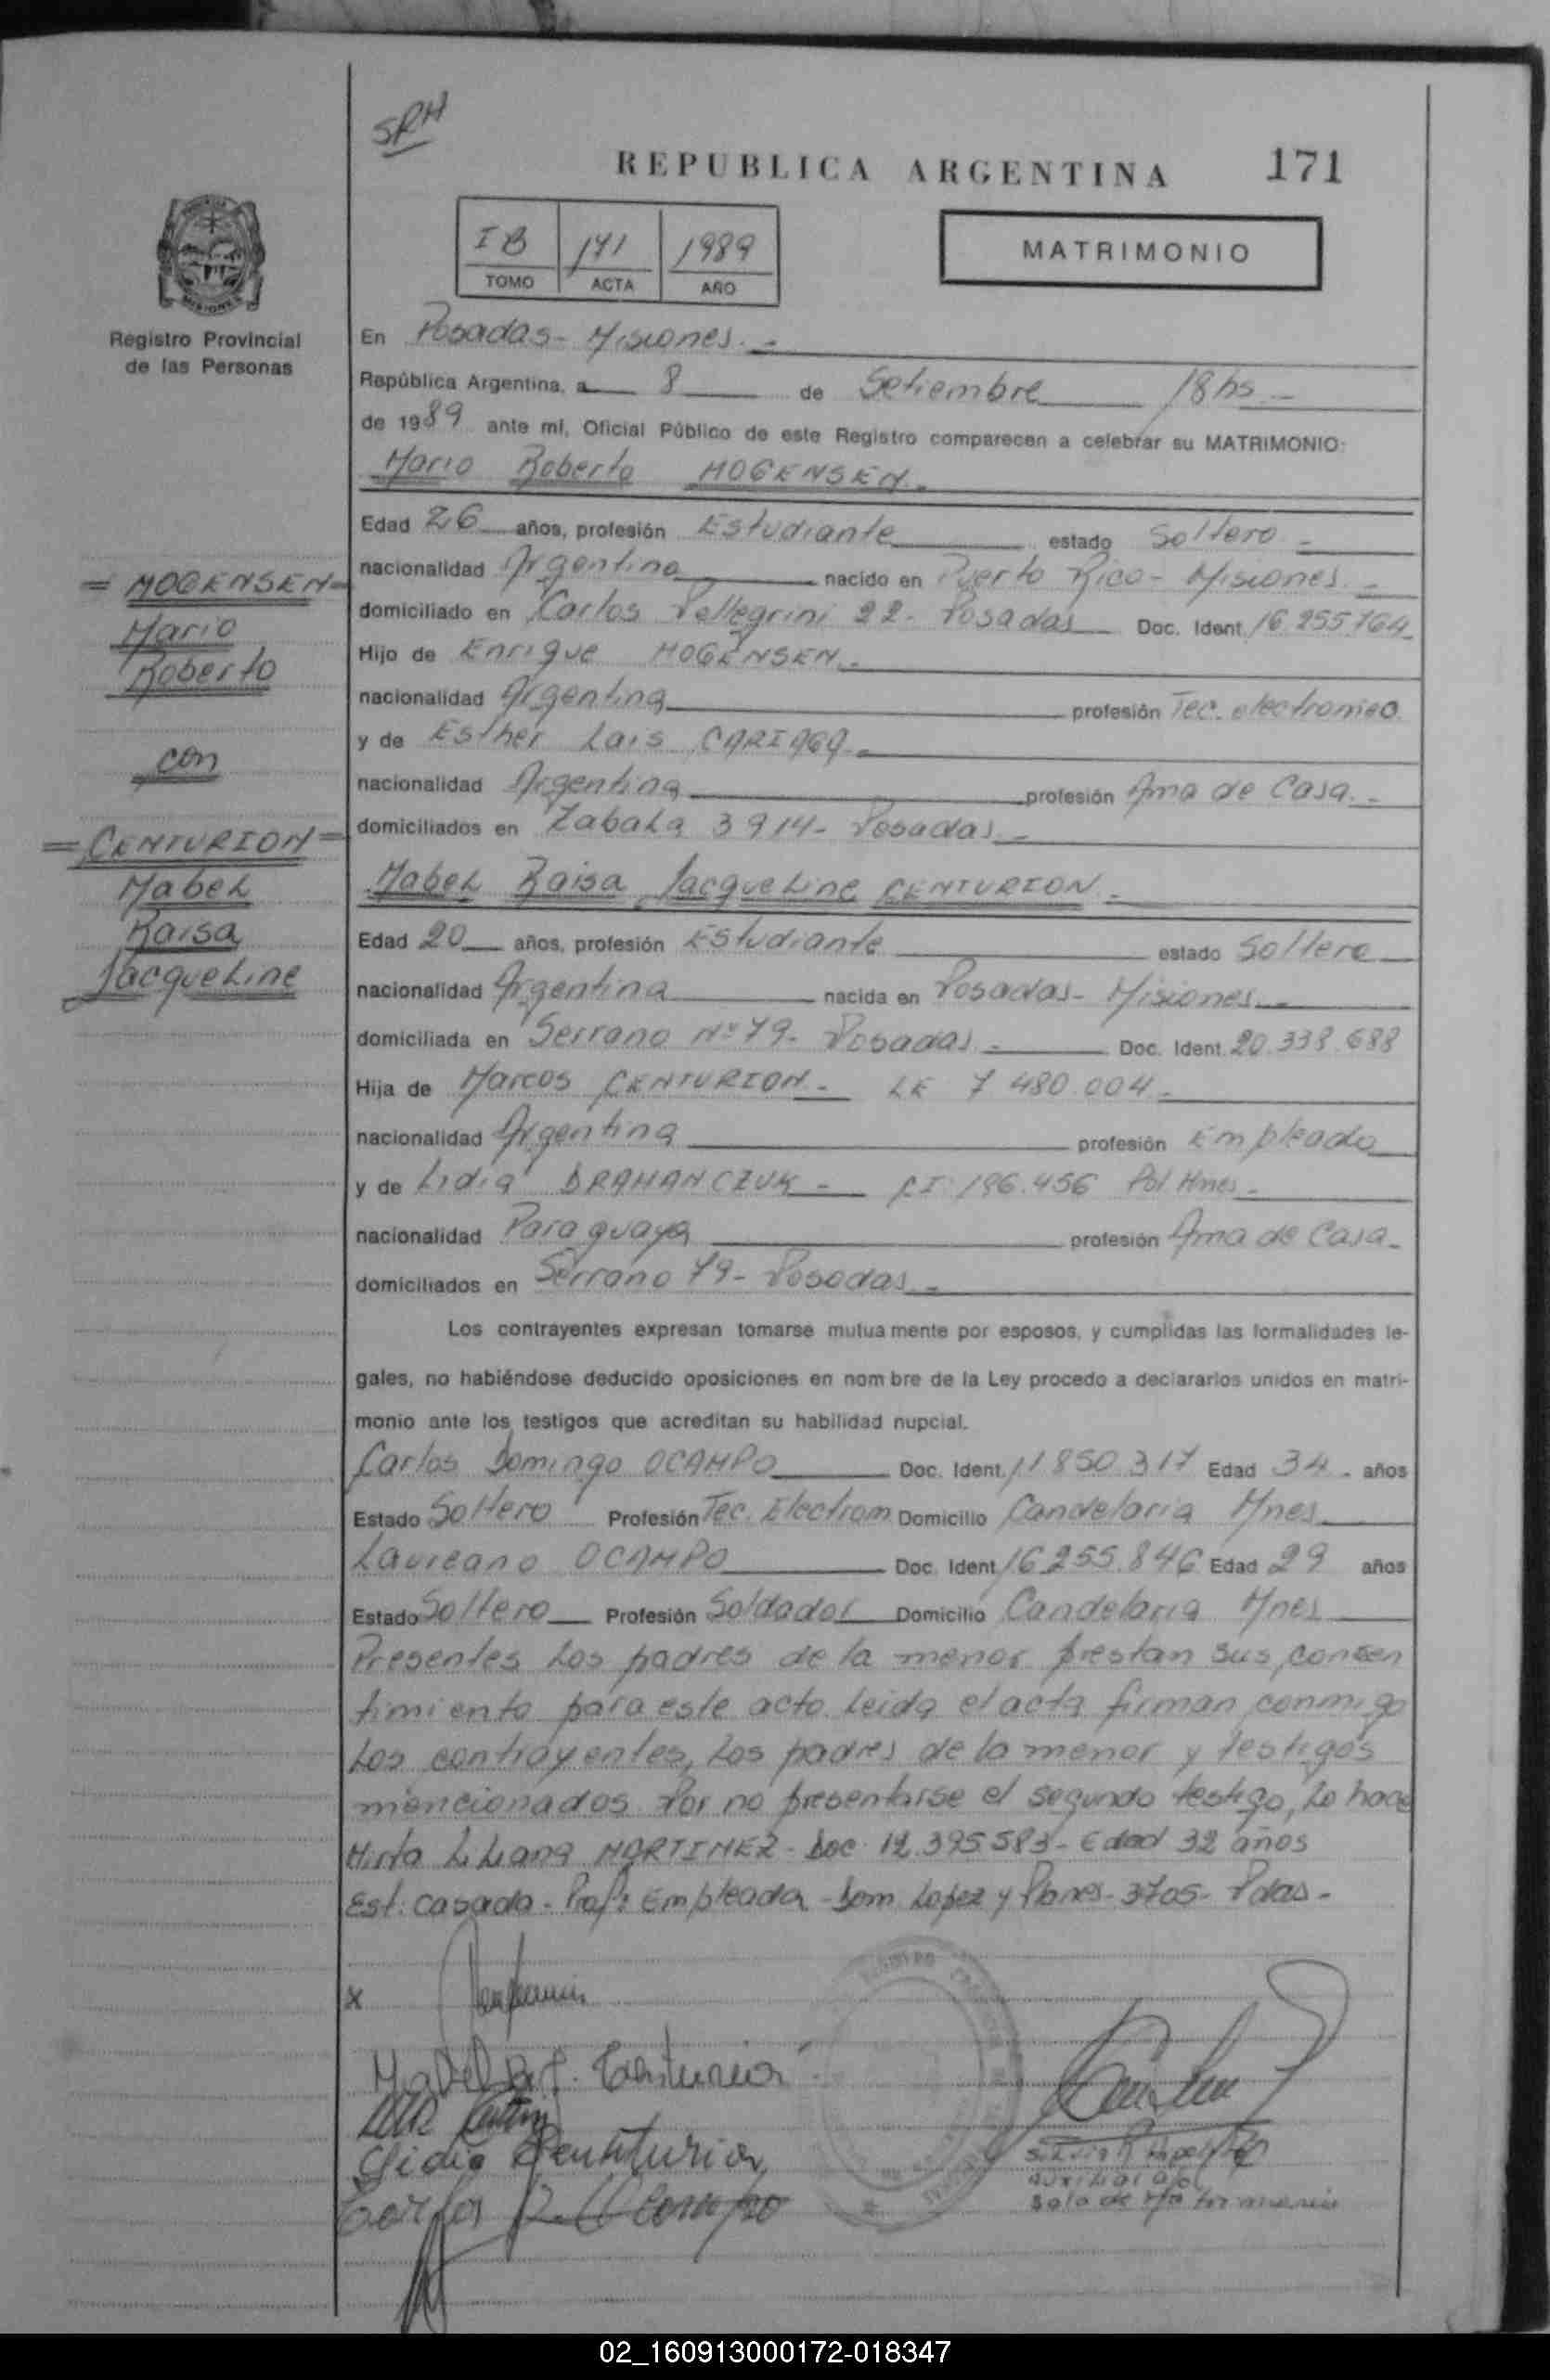 SRH
REPUBLICA ARGENTINA 171
IB 171 1989
TOMO ACTA AÑO
MATRIMONIO
MISIONES
Registro Provincial
de las Personas
En Posadas - Misiones. -
República Argentina, a 8 de Setiembre 18 hs. -
de 1989 ante mí, Oficial Público de este Registro comparecen a celebrar su MATRIMONIO:
Mario Roberto MOGENSEN. -
Edad 26 años, profesión Estudiante estado Soltero -
nacionalidad Argentina nacido en Puerto Rico - Misiones. -
domiciliado en Carlos Pellegrini 22 - Posadas Doc. Ident. 16.255.764
Hijo de Enrique MOGENSEN. -
nacionalidad Argentina profesión Tec. electromeo.
y de Esther Lais CARIAGA. -
nacionalidad Argentina profesión Ama de Casa. -
domiciliados en Zabala 3914 - Posadas. -
= MOGENSEN =
Mario
Roberto
con
= CENTURION =
Mabel
Raisa
Jacqueline
Mabel Raisa Jacqueline CENTURION. -
Edad 20 años, profesión Estudiante estado Soltera
nacionalidad Argentina nacida en Posadas - Misiones. -
domiciliada en Serrano Nº 79 - Posadas. - Doc. Ident. 20.338.688
Hija de Marcos CENTURION - LE 7 480.004 -
nacionalidad Argentina profesión Empleado
y de Lidia DRAHANCZUK - CI 196.456 Pol Mnes -
nacionalidad Paraguaya profesión Ama de Casa -
domiciliados en Serrano 79 - Posadas. -
Los contrayentes expresan tomarse mutuamente por esposos, y cumplidas las formalidades le-
gales, no habiéndose deducido oposiciones en nombre de la Ley procedo a declararlos unidos en matri-
monio ante los testigos que acreditan su habilidad nupcial.
Carlos Domingo OCAMPO Doc. Ident. 11850.317 Edad 34 - años
Estado Soltero Profesión Tec. Electrom Domicilio Candelaria Mnes
Laureano OCAMPO Doc. Ident 16.255.846 Edad 29 años
Estado Soltero Profesión Soldador Domicilio Candelaria Mnes
Presentes los padres de la menor prestan sus consen
timiento para este acto. Leida el acta firman conmigo
los contrayentes, los padres de la menor y testigos
mencionados. Por no presentarse el segundo testigo, lo hace
Mirta Liliana MARTINEZ - Doc. 12.395.583 - Edad 32 años
Est: casada - Prof: Empleada - Dom. Lopez y Planes - 3705 - Pdas -
x
Mabel R. J. Centurion
Lidia Centurion
Carlos D. Ocampo
02_160913000172-018347